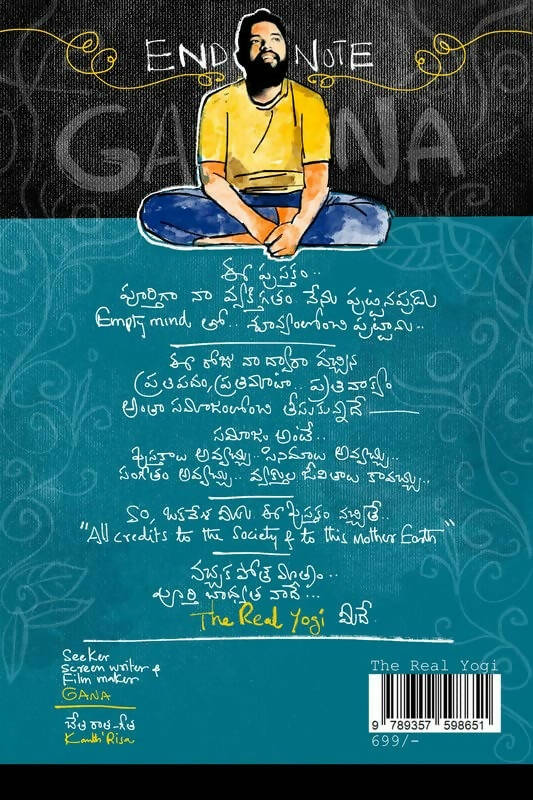 END NOTE
GANA
ఈ పుస్తకం..
పూర్తిగా నా వ్యక్తిగతం నేను పుట్టినపుడు
Empty mind తో.. శూన్యంలోంచి పుట్టాను..
ఈ రోజు నా ద్వారా వచ్చిన
ప్రతిపదం, ప్రతిమాటా.. ప్రతివాక్యం
అంతా సమాజంలోంచి తీసుకున్నదే
సమాజం అంటే..
పుస్తకాలు అవ్వచ్చు.. సినిమాలు అవ్వచ్చు..
సంగీతం అవ్వచ్చు.. వ్యక్తుల జీవితాలు కావచ్చు..
సో, ఒకవేళ మీకు ఈ పుస్తకం నచ్చితే..
"All credits to the Society & to this Mother Earth"
నచ్చక పోతే మాత్రం..
పూర్తి బాధ్యత నాదే...
The Real Yogi మీదే.
Seeker
Screen writer &
Film maker
GANA
చేతి రాత-గీత
Kanthi Risa
The Real Yogi
9 789357 598651
699/-